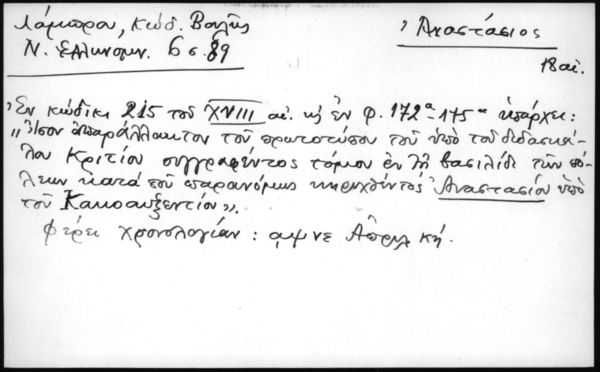 Λάμπρου, Κώδ. Βουλῆς
Ν. Ἑλληνομν. 6 σ. 89
Ἀναστάσιος
18 αἰ.
Ἐν κώδικι 215 τοῦ XVIII αἰ. κ ἐν φ. 172α-175α ὑπάρχει:
„Ἴσον ἀπαράλλακτον τοῦ πρωτοτύπου τοῦ ὑπὸ τοῦ διδασκά-
λου Κριτίου συγγραφέντος τόμου ἐν τῇ βασιλίδι τῶν πό-
λεων κατὰ τοῦ παρανόμως κηρυχθέντος Ἀναστασίου ὑπὸ
τοῦ Κακοαυξεντίου”.
φέρει χρονολογίαν: αψνε Ἀπριλ κή.